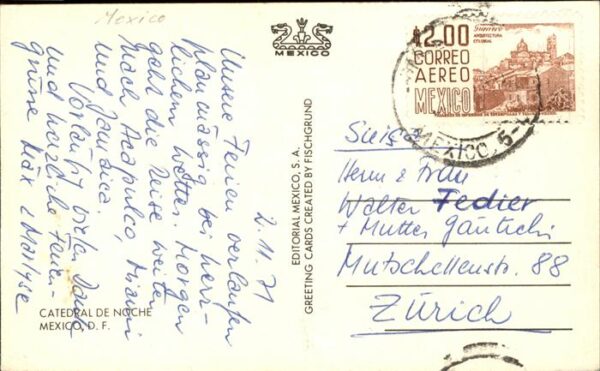 Mexico
2.11.71
Unsere Ferien verlaufen
planmässig bei herr-
lichem Wetter. Morgen
geht die Reise weiter
nach Acapulco, Miami
und Jamaica.
Vorläufig vielen Dank
und herzliche Ferien-
grüsse Max & Marlyse
CATEDRAL DE NOCHE
MEXICO, D. F.
MEXICO
EDITORIAL MEXICO, S. A.
GREETING CARDS CREATED BY FISCHGRUND
$2.00
CORREO
AEREO
MEXICO
ARQUITECTURA
COLONIAL
MEXICO 5
Herrn & Frau
Walter Fedier
+ Mutter Gautschi
Mutschellenstr. 88
Zürich